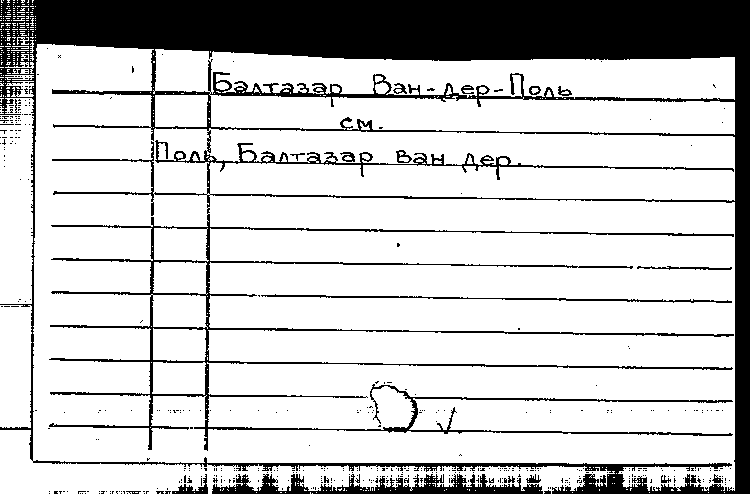 Балтазар Ван-дер-Поль
см.
Поль, Балтазар ван дер.